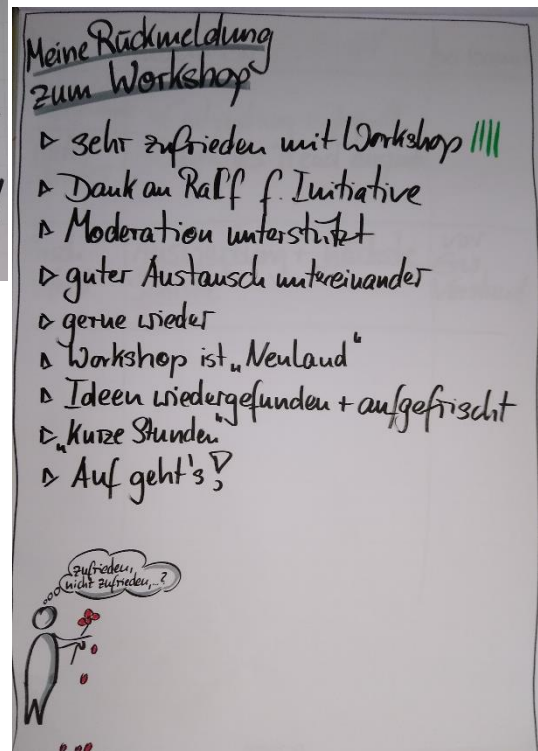 Meine Rückmeldung
zum Workshop
▷ sehr zufrieden mit Workshop ||||
▷ Dank an Ralf f. Initiative
▷ Moderation unterstützt
▷ guter Austausch untereinander
▷ gerne wieder
▷ Workshop ist „Neuland“
▷ Ideen wiedergefunden + aufgefrischt
▷ „Kurze Stunden“
▷ Auf geht's!
zufrieden,
nicht zufrieden,...?